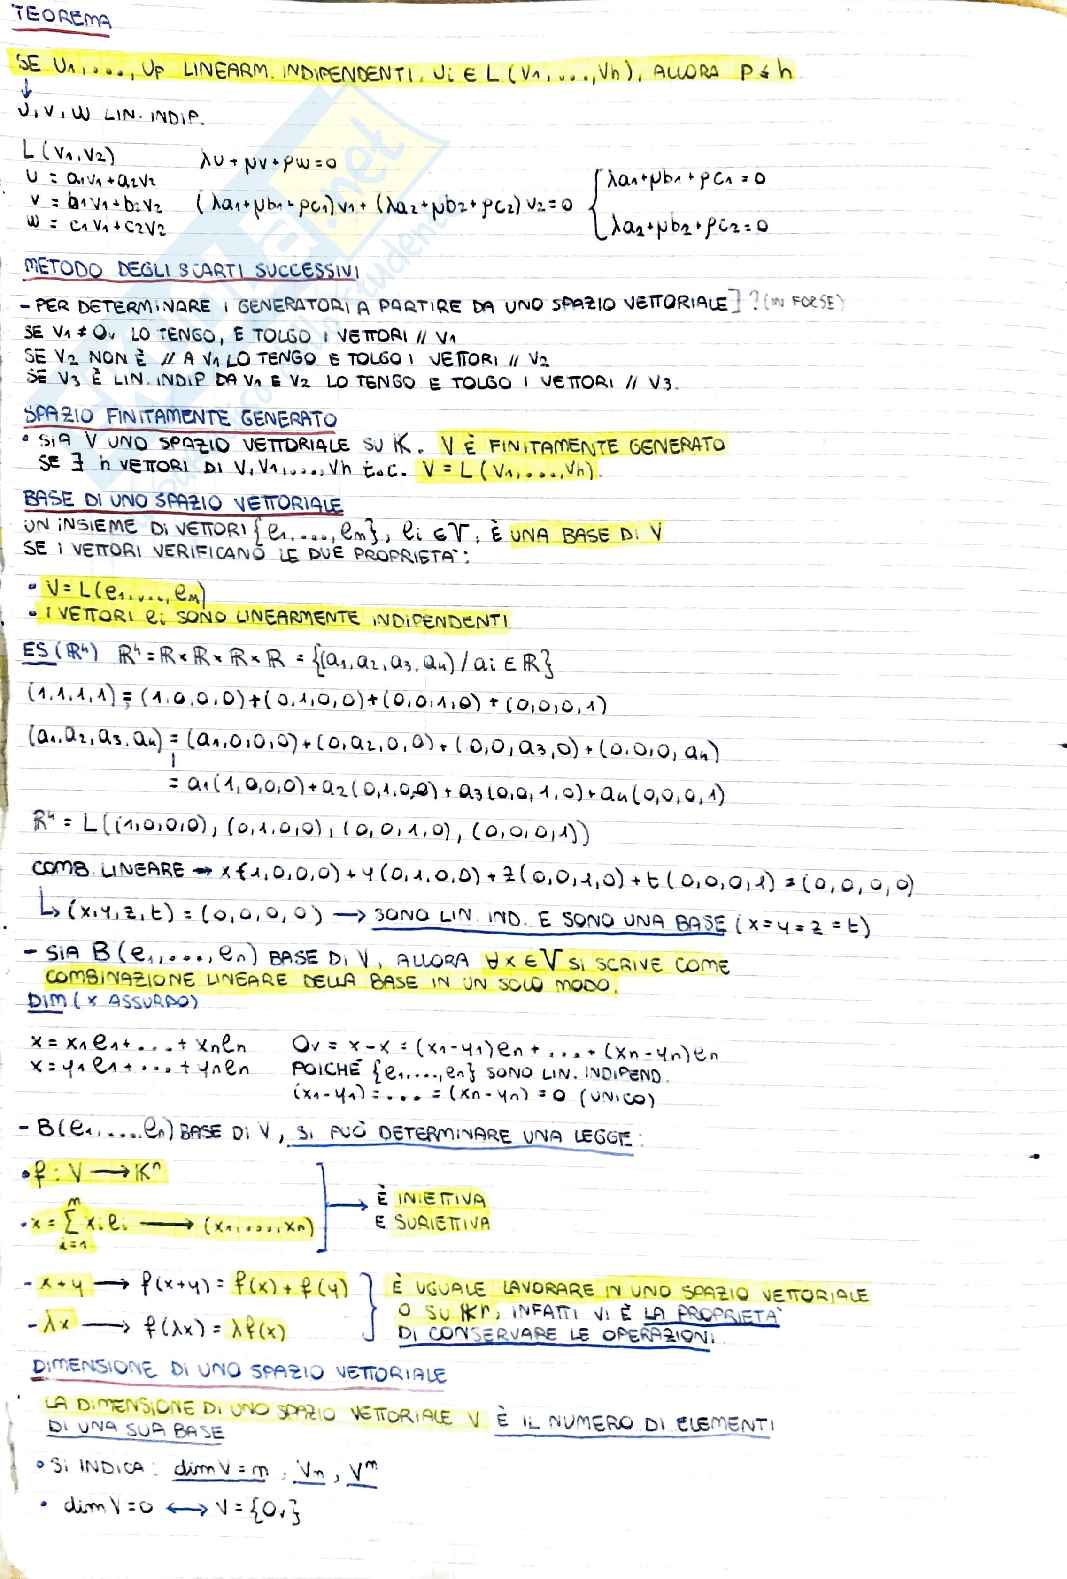 TEOREMA
SE U1,..., Up LINEARM. INDIPENDENTI, Ui ∈ L (V1,...,Vh), ALLORA P ≤ h
↓
U, V, W LIN. INDIP.
L (V1, V2)
λU + μV + ρW = 0
U = a1V1 + a2V2
V = b1V1 + b2V2
W = c1V1 + c2V2
(λa1+μb1+ρc1)V1 + (λa2+μb2+ρc2)V2 = 0
{ λa1+μb1+ρc1 = 0
λa2+μb2+ρc2 = 0
METODO DEGLI SCARTI SUCCESSIVI
- PER DETERMINARE I GENERATORI A PARTIRE DA UNO SPAZIO VETTORIALE ] ? (IN FORSE)
SE V1 ≠ 0v LO TENGO, E TOLGO I VETTORI // V1
SE V2 NON È // A V1 LO TENGO E TOLGO I VETTORI // V2
SE V3 È LIN. INDIP DA V1 E V2 LO TENGO E TOLGO I VETTORI // V3.
SPAZIO FINITAMENTE GENERATO
• SIA V UNO SPAZIO VETTORIALE SU K. V È FINITAMENTE GENERATO
SE ∃ h VETTORI DI V, V1,...,Vh t.c. V = L (V1,...,Vh).
BASE DI UNO SPAZIO VETTORIALE
UN INSIEME DI VETTORI {e1,...,en}, ei ∈ V, È UNA BASE DI V
SE I VETTORI VERIFICANO LE DUE PROPRIETA':
• V = L(e1,...,en)
• I VETTORI ei SONO LINEARMENTE INDIPENDENTI
ES (ℝ⁴) ℝ⁴ = ℝ × ℝ × ℝ × ℝ = {(a1,a2,a3,a4) / ai ∈ ℝ}
(1,1,1,1) = (1,0,0,0) + (0,1,0,0) + (0,0,1,0) + (0,0,0,1)
(a1,a2,a3,a4) = (a1,0,0,0) + (0,a2,0,0) + (0,0,a3,0) + (0,0,0,a4)
= a1(1,0,0,0) + a2(0,1,0,0) + a3(0,0,1,0) + a4(0,0,0,1)
ℝ⁴ = L((1,0,0,0), (0,1,0,0), (0,0,1,0), (0,0,0,1))
COMB. LINEARE → x(1,0,0,0) + y(0,1,0,0) + z(0,0,1,0) + t(0,0,0,1) = (0,0,0,0)
↳ (x,y,z,t) = (0,0,0,0) → SONO LIN. IND. E SONO UNA BASE (x=y=z=t)
- SIA B (e1,...,en) BASE DI V, ALLORA ∀x ∈ V SI SCRIVE COME
COMBINAZIONE LINEARE DELLA BASE IN UN SOLO MODO.
DIM (x ASSURDO)
x = x1e1 + ... + xnen
0v = x - x = (x1-y1)e1 + ... + (xn-yn)en
x = y1e1 + ... + ynen
POICHÉ {e1,...,en} SONO LIN. INDIPEND.
(x1-y1) = ... = (xn-yn) = 0 (UNICO)
- B(e1,...,en) BASE DI V, SI PUÒ DETERMINARE UNA LEGGE:
• f: V → Kⁿ
• x = n∑i=1 xiei → (x1,...,xn)
] → È INIETTIVA
E SURIETTIVA
- x+y → f(x+y) = f(x) + f(y)
- λx → f(λx) = λf(x)
} È UGUALE LAVORARE IN UNO SPAZIO VETTORIALE
O SU Kⁿ, INFATTI VI È LA PROPRIETA'
DI CONSERVARE LE OPERAZIONI.
DIMENSIONE DI UNO SPAZIO VETTORIALE
LA DIMENSIONE DI UNO SPAZIO VETTORIALE V È IL NUMERO DI ELEMENTI
DI UNA SUA BASE
• SI INDICA: dim V = n, Vn, Vⁿ
• dim V = 0 ↔ V = {0v}